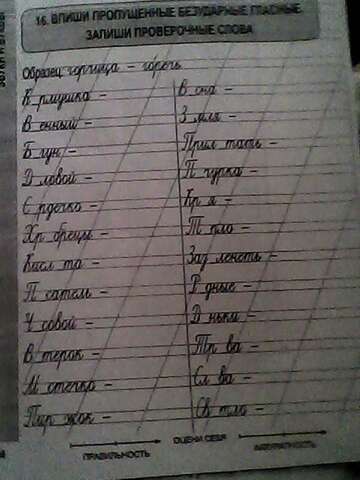 16. ВПИШИ ПРОПУЩЕННЫЕ БЕЗУДАРНЫЕ ГЛАСНЫЕ.
ЗАПИШИ ПРОВЕРОЧНЫЕ СЛОВА
Образец: горчица – горечь
К рмушка –
В енный –
Б гун –
Д ловой –
С рдечко –
Хр брецы –
Кисл та –
П сатель –
Ч совой –
В терок –
М стечко –
Пир жок –
В сна –
З мля –
Прил тать –
П гурка –
Кр я –
Т пло –
Заз ленеть –
Р дные –
Д ньки –
Тр ва –
Сл ва –
Св тло –
ПРАВИЛЬНОСТЬ
ОЦЕНИ СЕБЯ
АККУРАТНОСТЬ